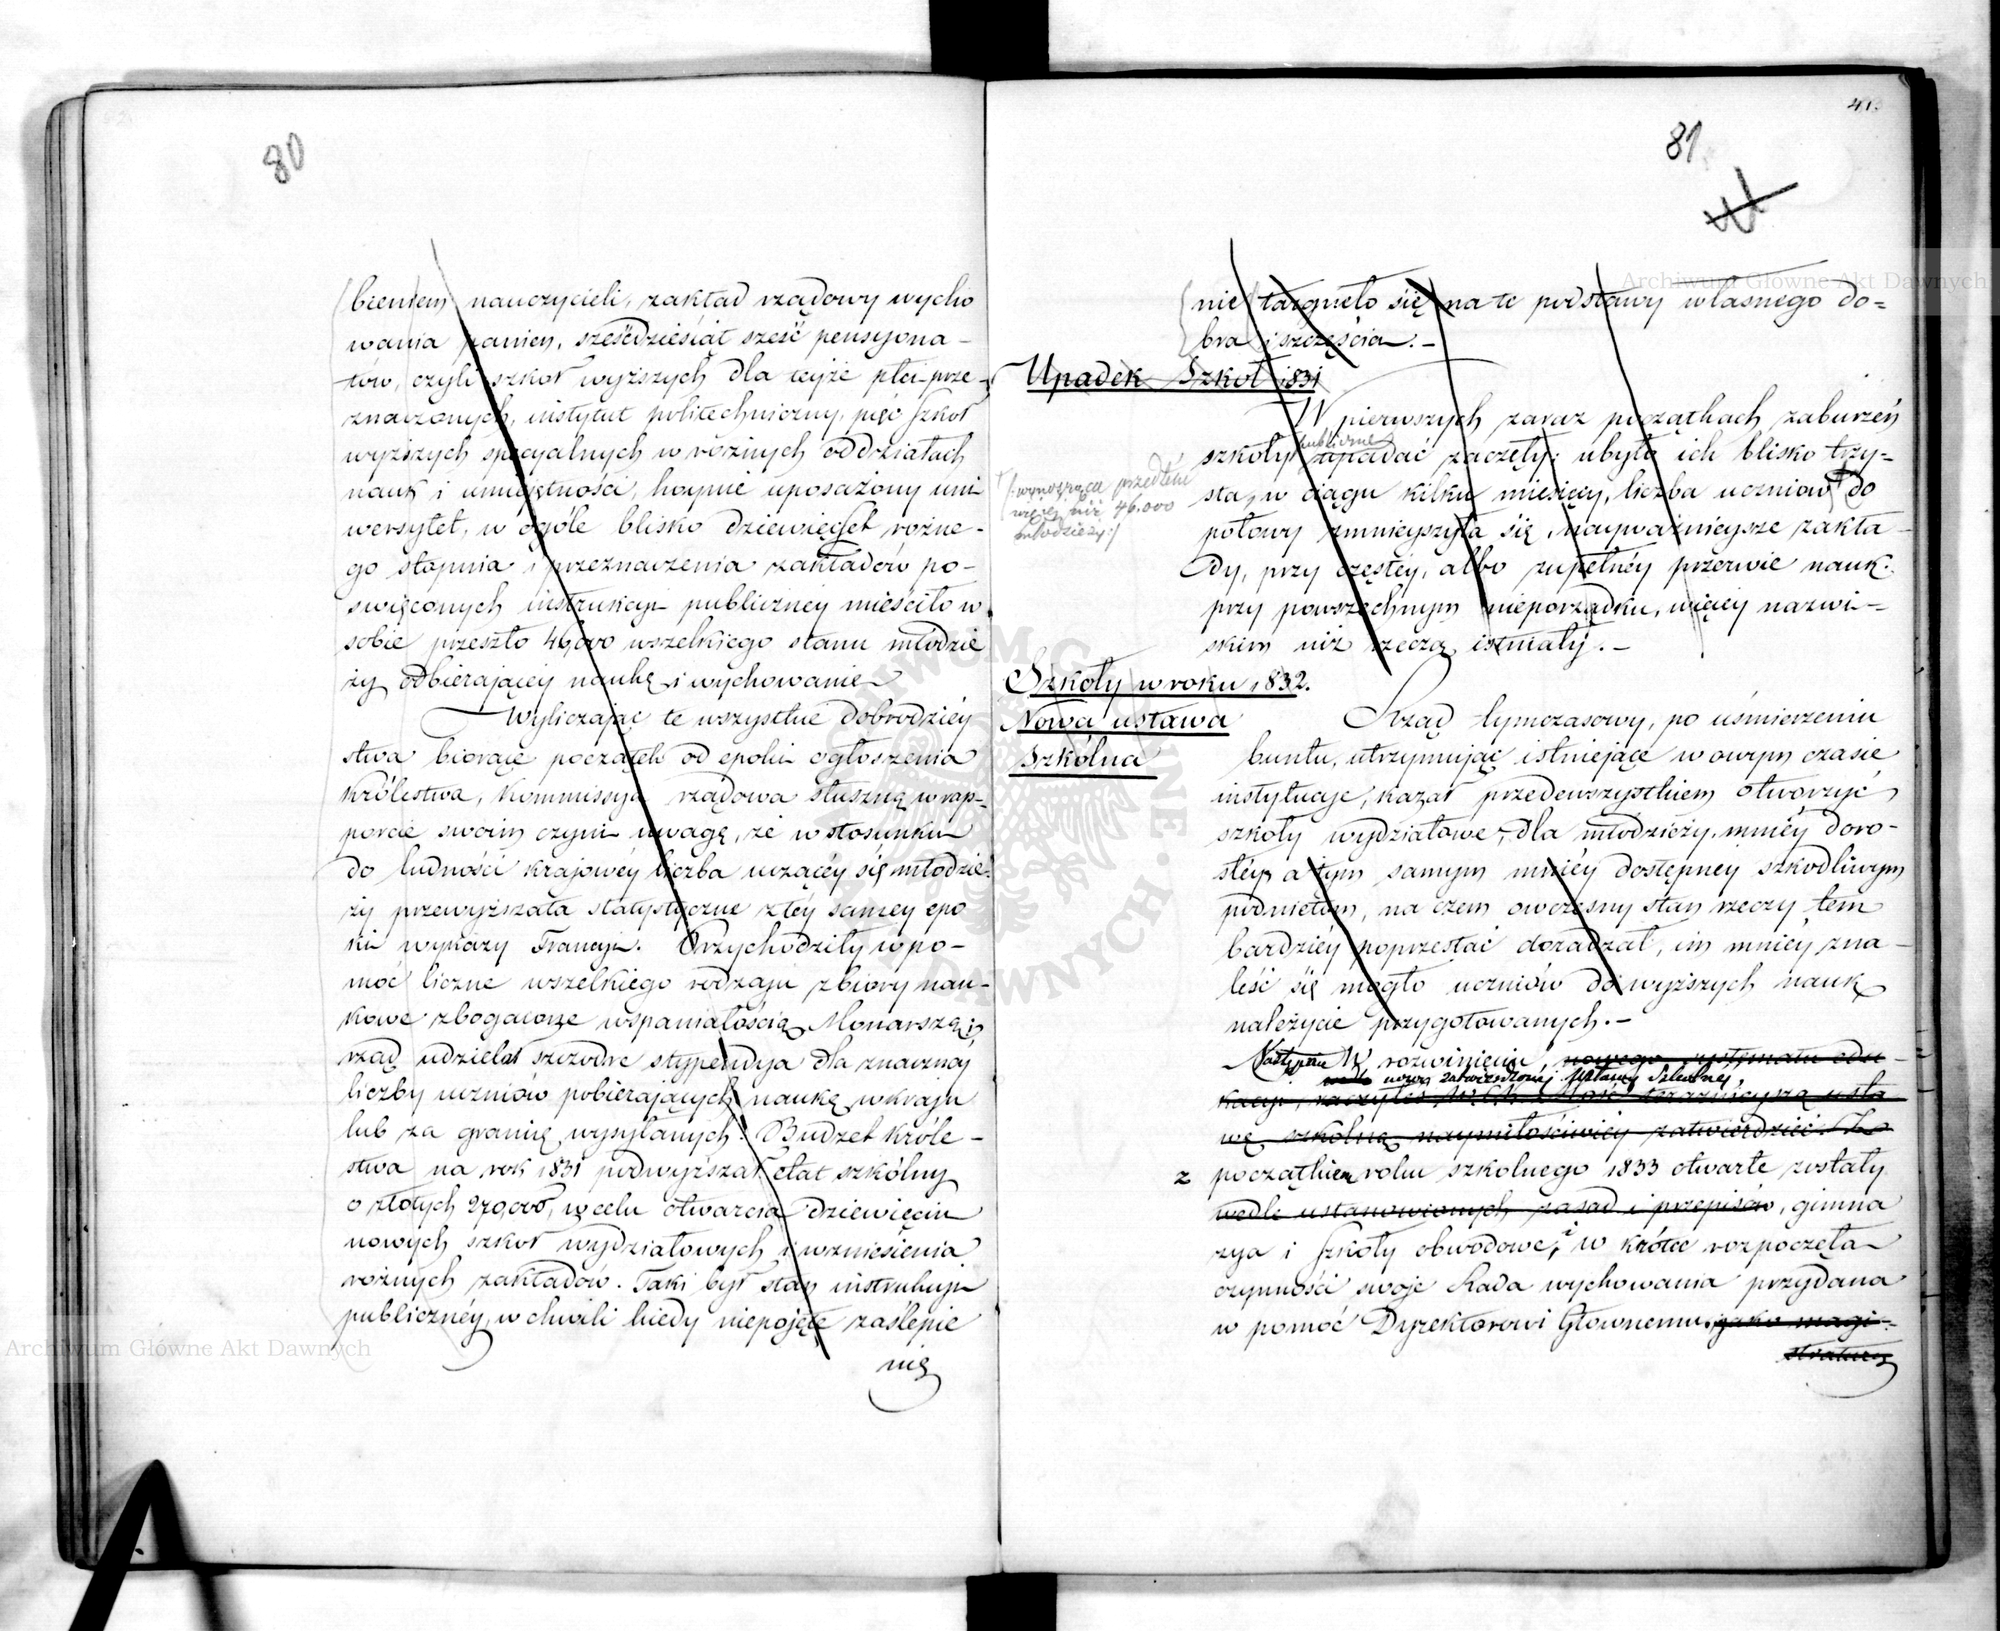 80
bieniem nauczycieli, zakład rządowy wycho
wania panien, sześćdziesiąt sześć pensyona-
tów, czyli szkół wyższych dla teyże płci prze-
znaczonych, instytut politechniczny, pięć Szkół
wyższych specyalnych w różnych oddziałach
nauk i umiejętności, hoynie uposażony uni-
wersytet, w ogóle blisko dziewięćset różne-
go stopnia i przeznaczenia zakładów po-
święconych instrukcyi publiczney mieściło w
sobie przeszło 46,000 wszelkiego stanu młodzie
ży odbierającey naukę i wychowanie
Wyliczając te wszystkie dobrodziéy
stwa biorące początek od epoki ogłoszenia
Królestwa, Kommissya rządowa słuszną w rap-
porcie swoim czyni uwagę, że w stosunku
do ludności krajowéy liczba uczącéy się młodzie-
ży przewyższała statystyczne z téy saméy epo
ki wykazy Francyi. Przychodziły w po-
moc liczne wszelkiego rodzaju zbiory nau-
kowe zbogacone wspaniałością Monarszą;
rząd udzielał szczodre stypendya dla znacznéj
liczby uczniów pobierających naukę w kraju
lub za granicę wysyłanych. Budżet Króle-
stwa na rok 1831 podwyższał etat szkólny
o złotych 270,000, w celu otwarcia dziewięciu
nowych szkół wydziałowych i wzniesienia
różnych zakładów. Taki był stan instrukcyi
publicznéy w chwili kiedy niepojęte zaślepie
nie
413
81
nie targnęło się na te podstawy własnego do=
bra i szczęścia.-
Upadek Szkół 1831
W pierwszych zaraz początkach zaburzeń
publiczne
szkoły upadać zaczęły; ubyło ich blisko trzy-
sta, w ciągu kilku miesięcy, liczba uczniów do
/:wynosząca przedtem
więcej niż 46.000
młodzieży:/
połowy zmnieyszyła się, nayważnieysze zakła-
dy, przy częstéy, albo zupełnéy przerwie nauk.
przy powszechnym nieporządku, więcéy nazwi-
skim niż rzeczą istniały.-
Szkoły w roku 1832.
Nowa ustawa
Szkólna
Rząd tymczasowy, po uśmierzeniu
buntu, utrzymując istniejące w owym czasie
instytucje, kazał przedewszystkiem otworzyć
szkoły wydziałowe, dla młodzieży mniéy doro-
słéy, a tym samym mniéy dostępney szkodliwym
podnietom, na czem owczesny stan rzeczy tem
bardziéy poprzestać doradzał, im mniéy zna-
leść się mogło uczniów do wyższych nauk
należycie przygotowanych.-
Następnie W rozwinięciu nowego systematu edu-
nowo zatwierdzonéj Ustawy Szkolnéj,
kacyi, raczyłeś teraźnieyszą usta
wę szkolną naymiłościwiéy zatwierdzić. Z
z początkiem roku szkolnego 1833 otwarte zostały
wedle ustanowionych zasad i przepisów, gimna
zya i Szkoły obwodowe, i w krótce rozpoczęła
czynności swoje Rada wychowania przydana
w pomoc Dyrektorowi Głownemu, jako magi-
stratura
Archiwum Główne Akt Dawnych
Archiwum Główne Akt Dawnych